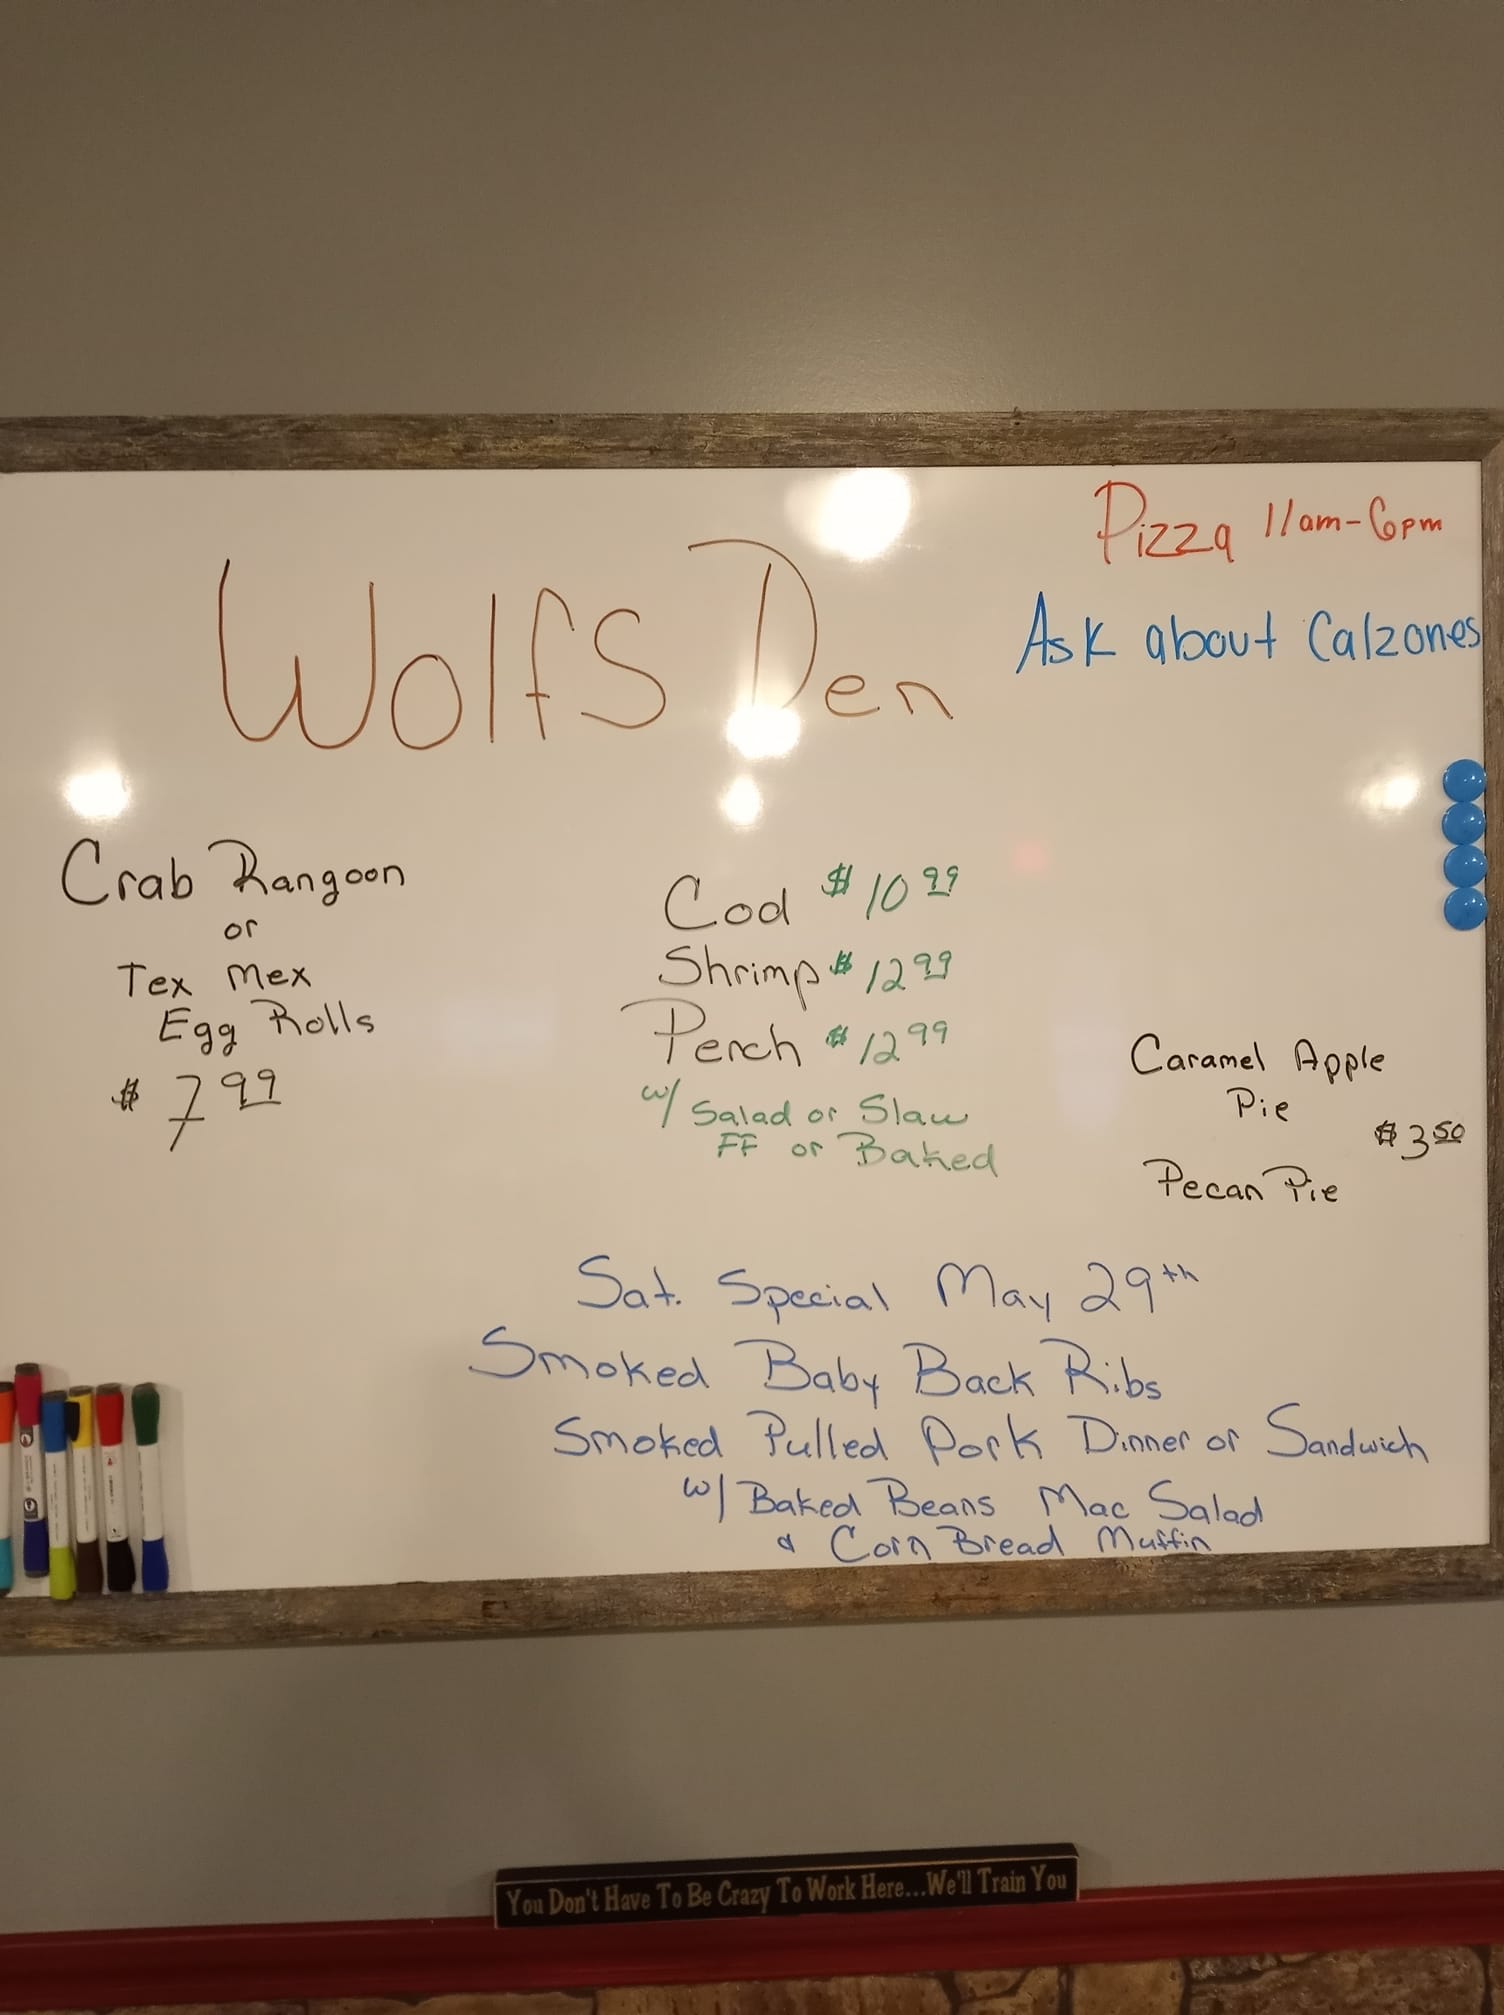 Pizza 11am-6pm
Ask about Calzones
Wolfs Den
Crab Rangoon
or
Tex Mex
Egg Rolls
$ 7.99
Cod $10.99
Shrimp $12.99
Perch $12.99
w/ Salad or Slaw
FF or Baked
Caramel Apple
Pie
$3.50
Pecan Pie
Sat. Special May 29th
Smoked Baby Back Ribs
Smoked Pulled Pork Dinner or Sandwich
w/ Baked Beans Mac Salad
& Corn Bread Muffin
You Don't Have To Be Crazy To Work Here...We'll Train You